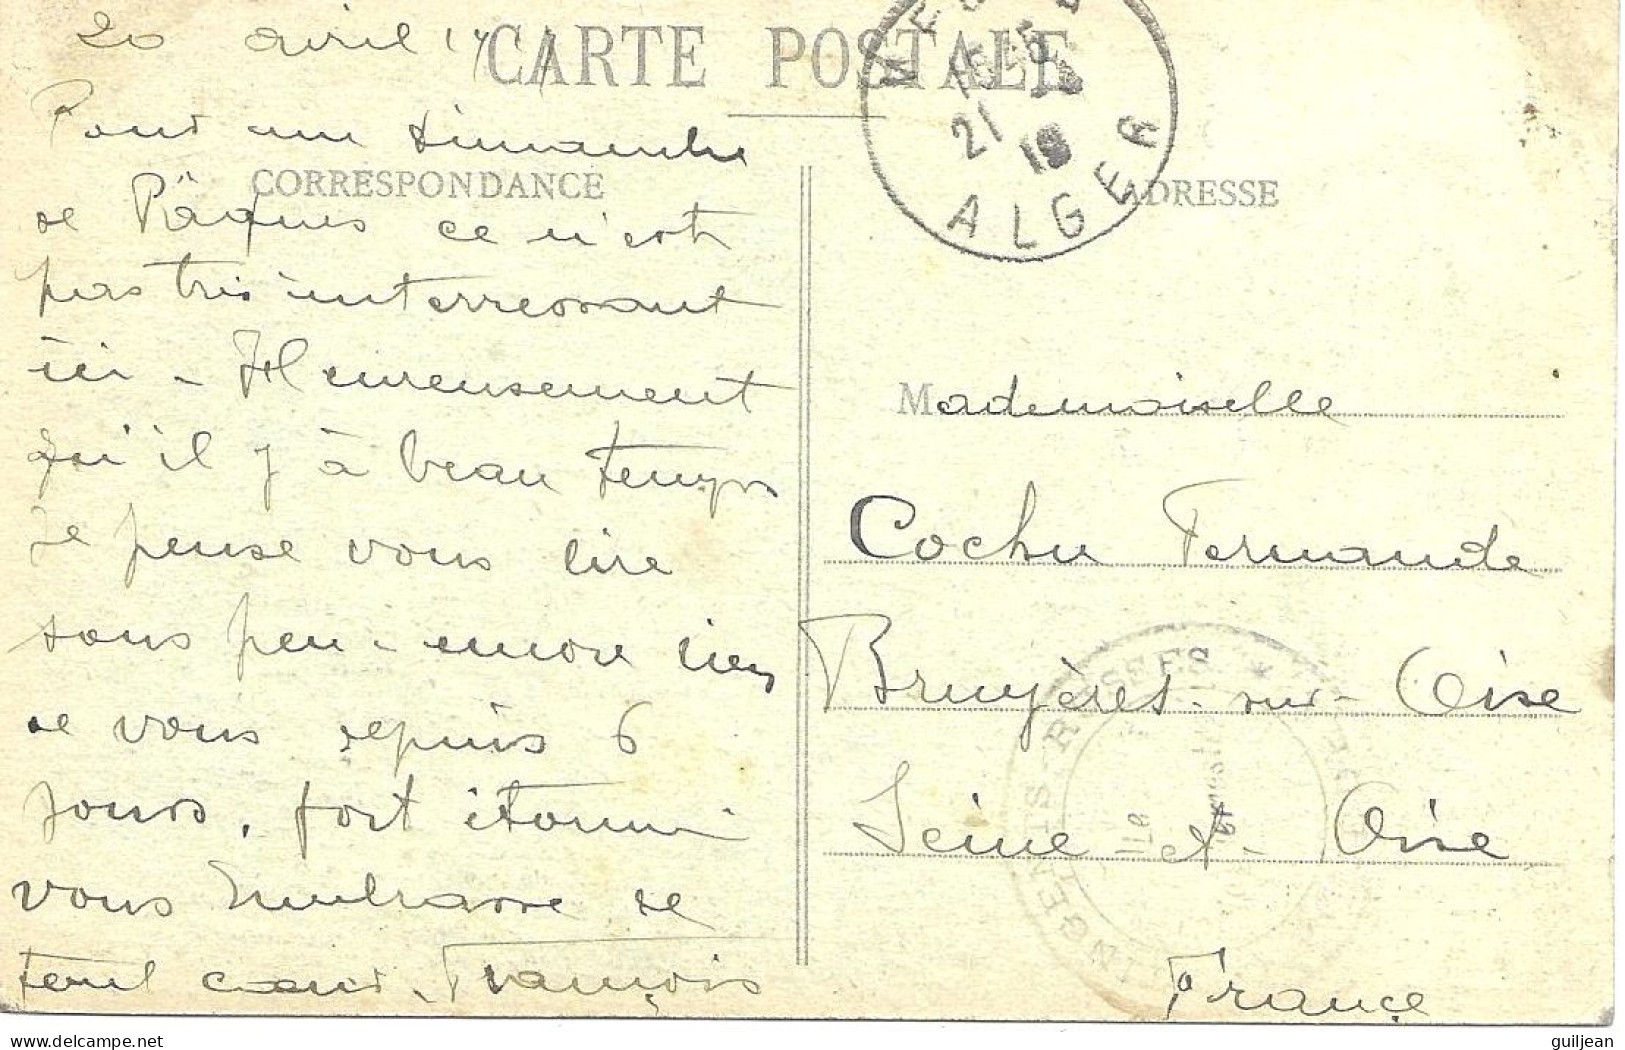 20 avril 19
CARTE POSTALE
Pour un dimanche
CORRESPONDANCE
de Pâques ce n'est
pas très interressant
ici - Heureusement
qu'il y à beau temps
Je pense vous lire
sous peu - encore rien
de vous depuis 6
jours, fort étonné
vous Embrasse de
tout cœur. François
21
19
ALGER
ADRESSE
Mademoiselle
Cochu Fernande
Bruyères-sur-Oise
Seine et Oise
France
INGENTS RUSSES
guiljean